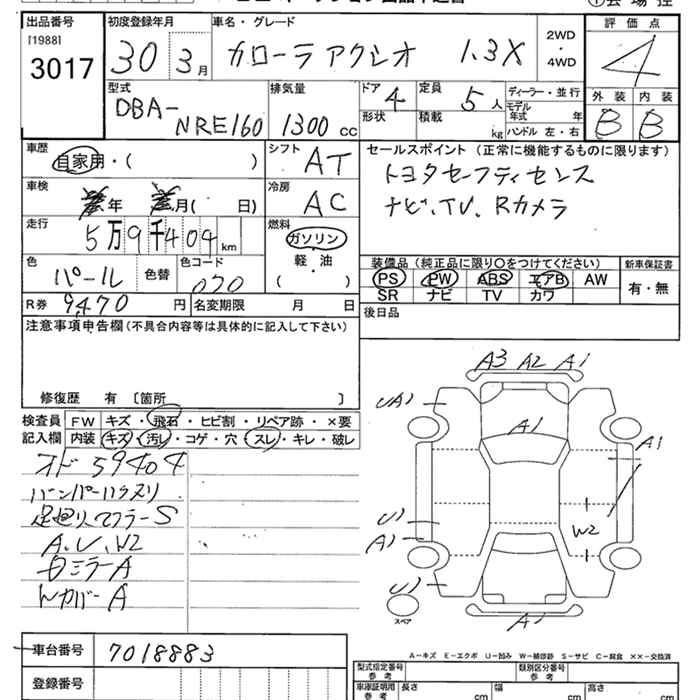 出品番号 初度登録年月 車名・グレード 評価点
[1988]
3017 30 3月 カローラ アクシオ 1.3X 2WD・4WD 4
型式 排気量 ドア 定員 ディーラー・並行 外装 内装
DBA-NRE160 1300cc 4 5人 モデル年式 年 B B
形状 積載 kg ハンドル 左・右
車歴 シフト セールスポイント (正常に機能するものに限ります)
自家用・( ) AT トヨタセーフティセンス
車検 冷房 ナビ、TV、Rカメラ
年 月( 日) AC
走行 燃料
5万9千404km ガソリン
軽・油
( )
色 色替 色コード 装備品 (純正品に限り○をつけてください) 新車保証書
パール 070 PS PW ABS エアB AW 有・無
SR ナビ TV カワ
R券 9470円 名変期限 月 日 後日品
注意事項申告欄(不具合内容等は具体的に記入して下さい)
修復歴 有 [箇所 ]
検査員 FW キズ・飛石・ヒビ割・リペア跡・×要
記入欄 内装 キズ・汚レ・コゲ・穴・スレ・キレ・破レ
オド 59404
バンパーハゲヌリ
足廻リマフラーS
A、U、W2
ミラーA
A
A3 A2 A1
UA1
A1
A1
U1
W2
A1
U1
スペア
A1
A-キズ E-エクボ U-凹み W-補修跡 S-サビ C-腐食 ××-交換済
車台番号 7018883
登録番号
型式指定番号 参考 類別区分番号 参考
車庫証明用 参考 長さ cm 幅 cm 高さ cm